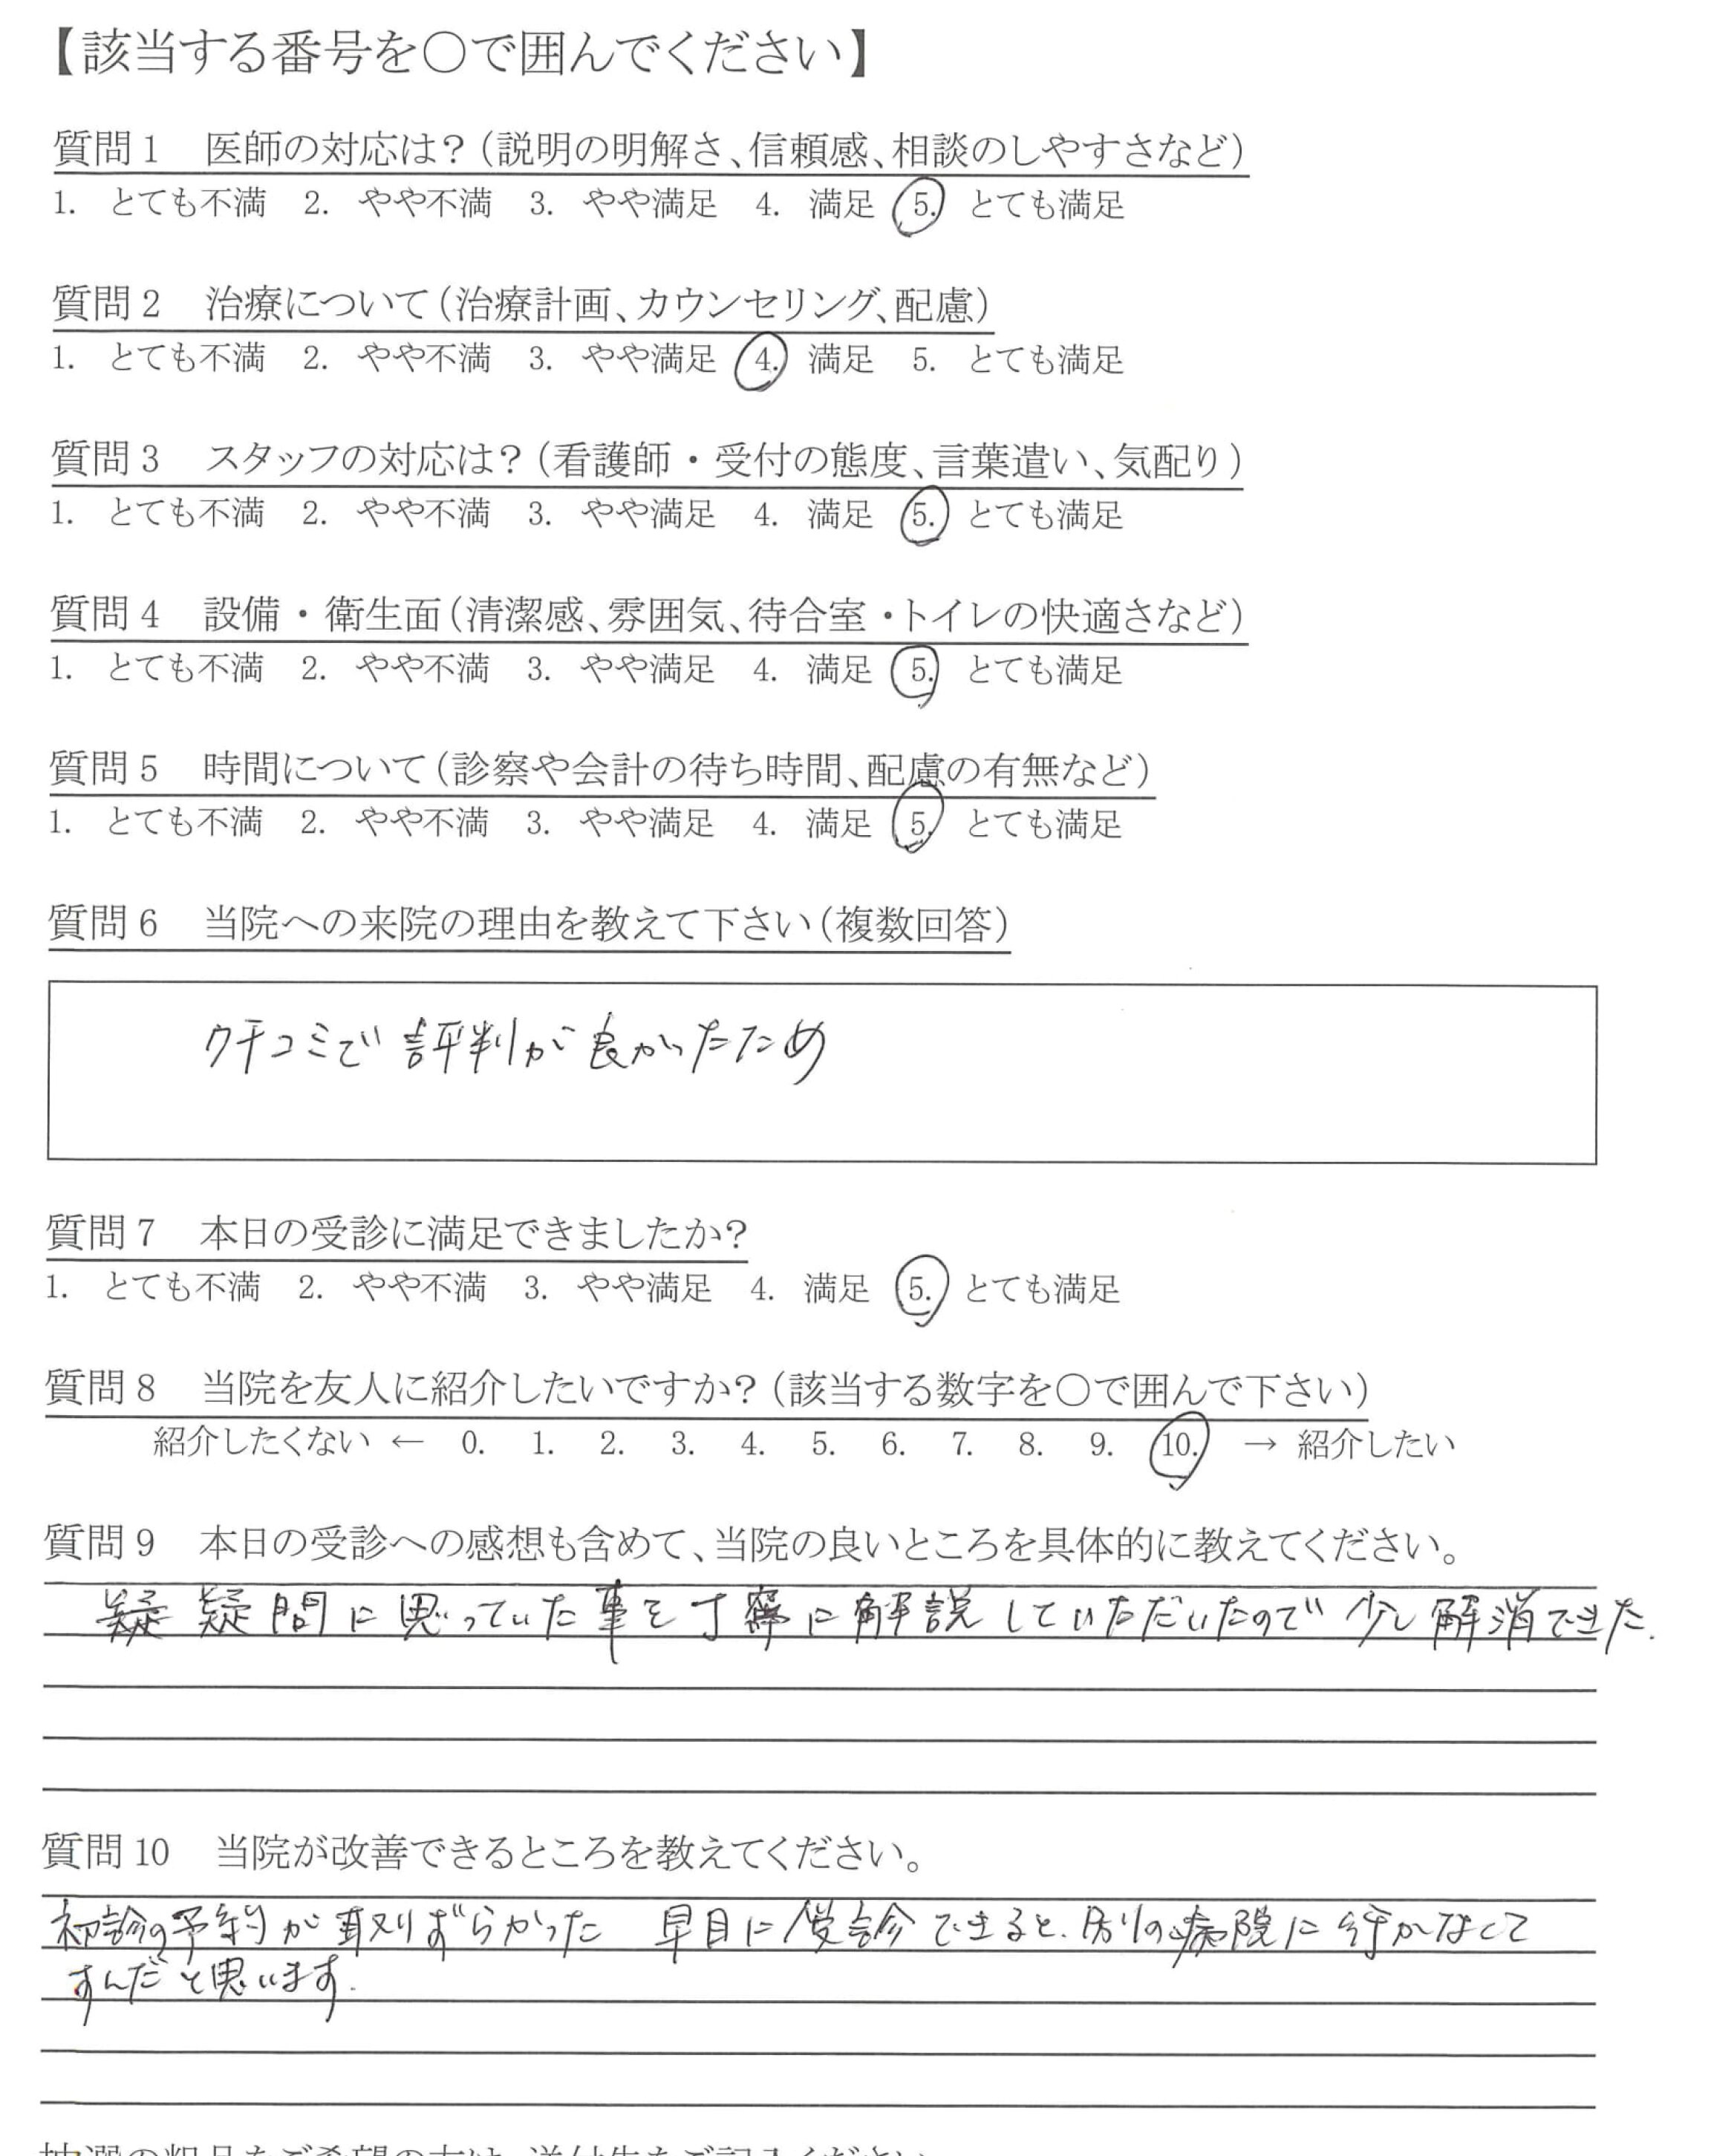 【該当する番号を〇で囲んでください】
質問1　医師の対応は？（説明の明解さ、信頼感、相談のしやすさなど）
1.　とても不満　2.　やや不満　3.　やや満足　4.　満足　5.　とても満足
質問2　治療について（治療計画、カウンセリング、配慮）
1.　とても不満　2.　やや不満　3.　やや満足　4.　満足　5.　とても満足
質問3　スタッフの対応は？（看護師・受付の態度、言葉遣い、気配り）
1.　とても不満　2.　やや不満　3.　やや満足　4.　満足　5.　とても満足
質問4　設備・衛生面（清潔感、雰囲気、待合室・トイレの快適さなど）
1.　とても不満　2.　やや不満　3.　やや満足　4.　満足　5.　とても満足
質問5　時間について（診察や会計の待ち時間、配慮の有無など）
1.　とても不満　2.　やや不満　3.　やや満足　4.　満足　5.　とても満足
質問6　当院への来院の理由を教えて下さい（複数回答）
クチコミで評判が良かったため
質問7　本日の受診に満足できましたか？
1.　とても不満　2.　やや不満　3.　やや満足　4.　満足　5.　とても満足
質問8　当院を友人に紹介したいですか？（該当する数字を〇で囲んで下さい）
紹介したくない ← 0.　1.　2.　3.　4.　5.　6.　7.　8.　9.　10.　→ 紹介したい
質問9　本日の受診への感想も含めて、当院の良いところを具体的に教えてください。
疑問に思っていた事を丁寧に解説していただいたので少し解消できた.
質問10　当院が改善できるところを教えてください。
初診の予約が取りずらかった　早目に受診できると、別の病院に行かなくて
すんだと思います.
抽選の粗品をご希望の方は、送付先をご記入ください